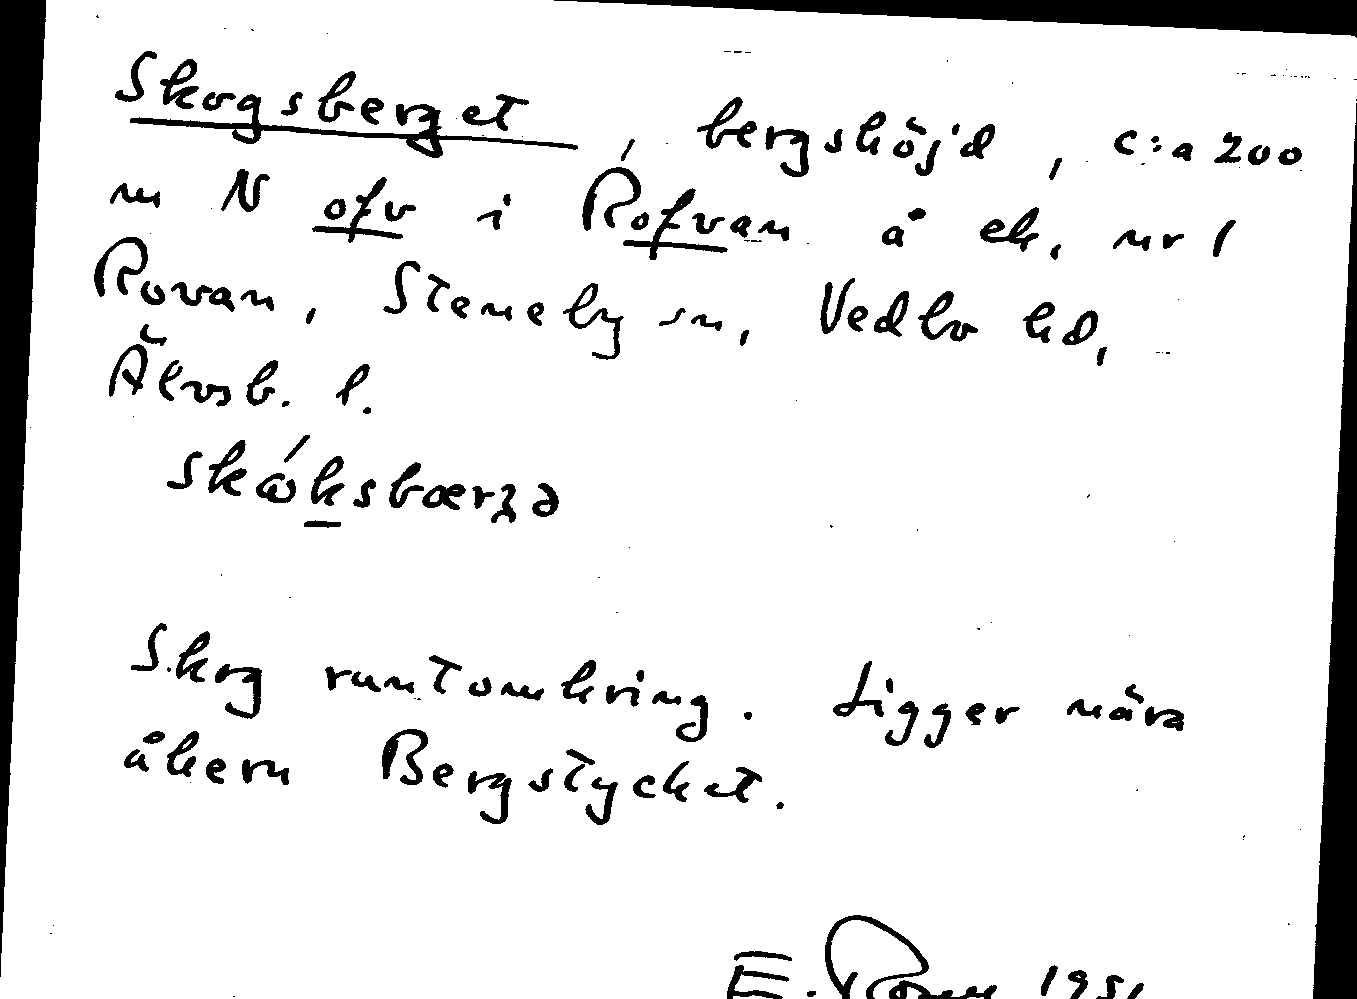 Skogsberget, bergshöjd, c:a 200
m N ofv i Rofvan å ek. nr 1
Rovan, Steneby sn, Vedbo hd,
Älvsb. l.
Skog runtomkring. Ligger nära
åkern Bergstycket.
E. 1951